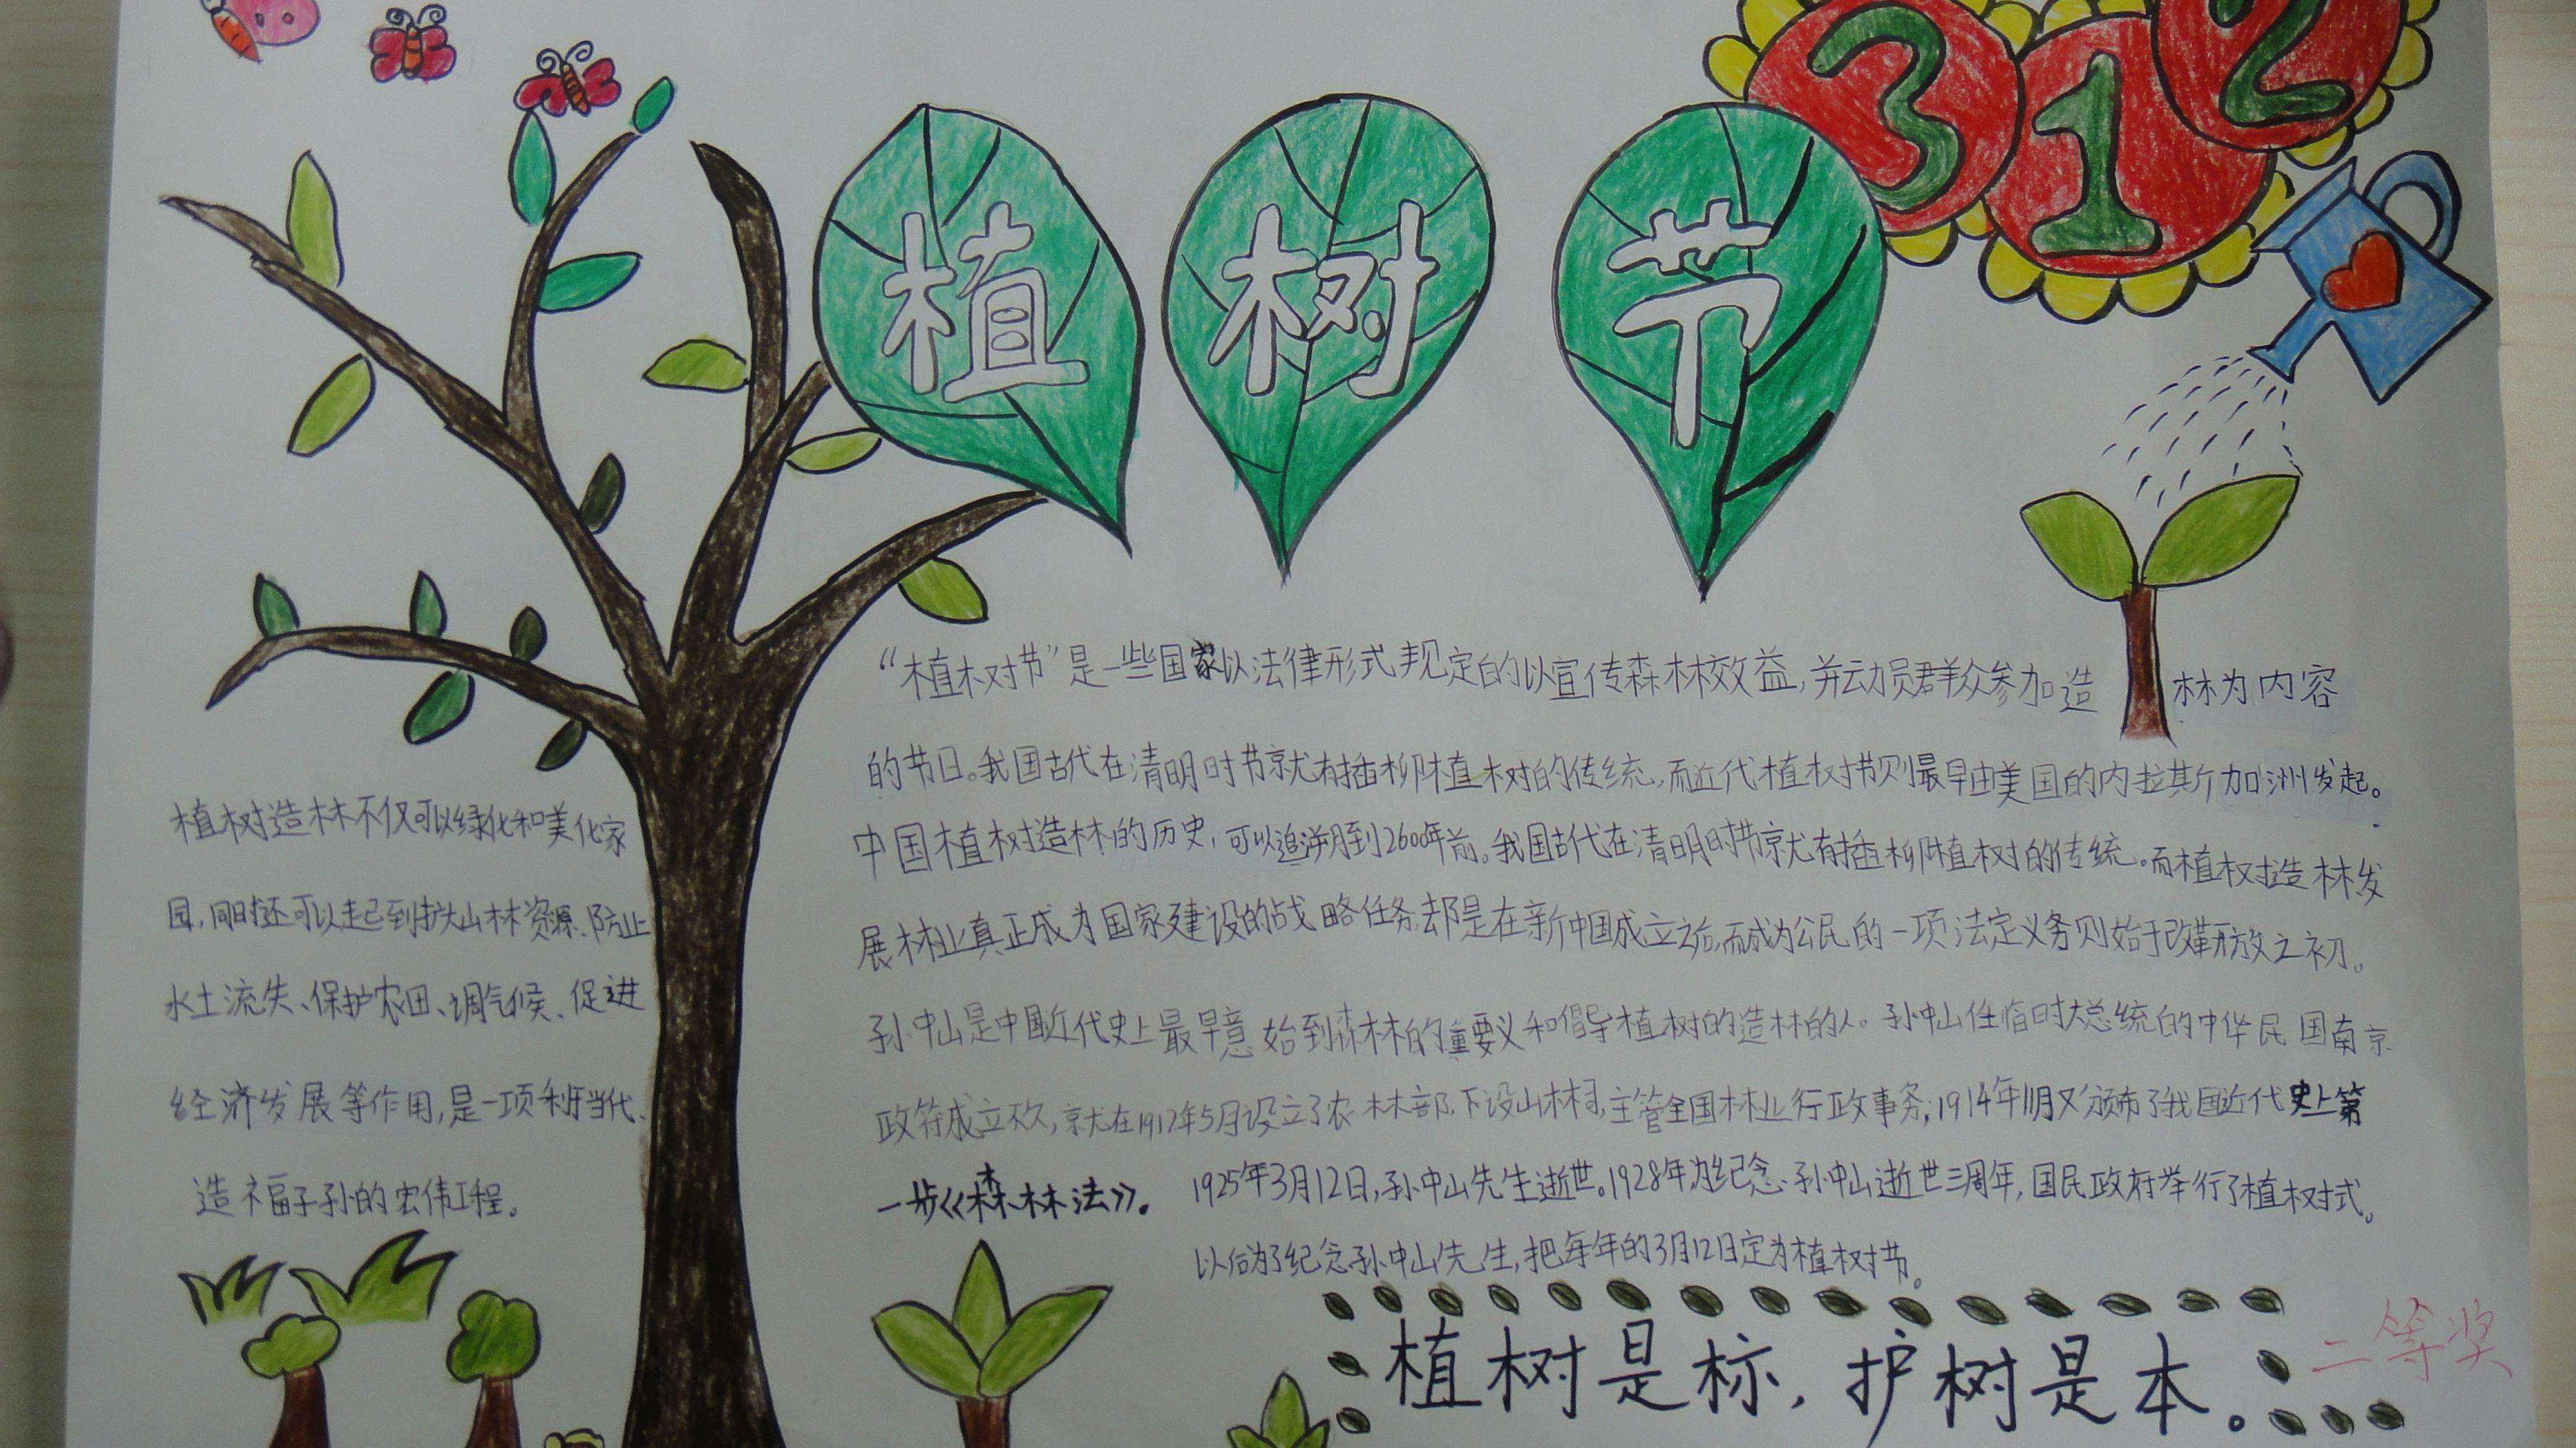 312
植树节
“植树节”是一些国家以法律形式规定的以宣传森林效益,并动员群众参加造林为内容
的节日。我国古代在清明时节就有插柳植树的传统,而近代植树节则最早由美国的内拉斯加洲发起。
中国植树造林的历史,可以追溯到2600年前。我国古代在清明时节就有插柳植树的传统。而植树造林发
展林业真正成为国家建设的战略任务却是在新中国成立之后,而成为公民的一项法定义务则始于改革开放之初。
孙中山是中国近代史上最早意始到森林的重要义和倡导植树的造林的人。孙中山任临时大总统的中华民国南京
政府成立不久,就在1912年5月设立了农林部,下设山林司,主管全国林业行政事务,1914年11月又颁布了我国近代史上第
一步《森林法》。
1925年3月12日,孙中山先生逝世。1928年为纪念孙中山逝世三周年,国民政府举行了植树式。
以后为了纪念孙中山先生,把每年的3月12日定为植树节。
植树造林不仅可以绿化和美化家
园,同时还可以起到扩大山林资源、防止
水土流失、保护农田、调气候、促进
经济发展等作用,是一项利于当代、
造福子孙的宏伟工程。
植树是标,护树是本。
二等奖